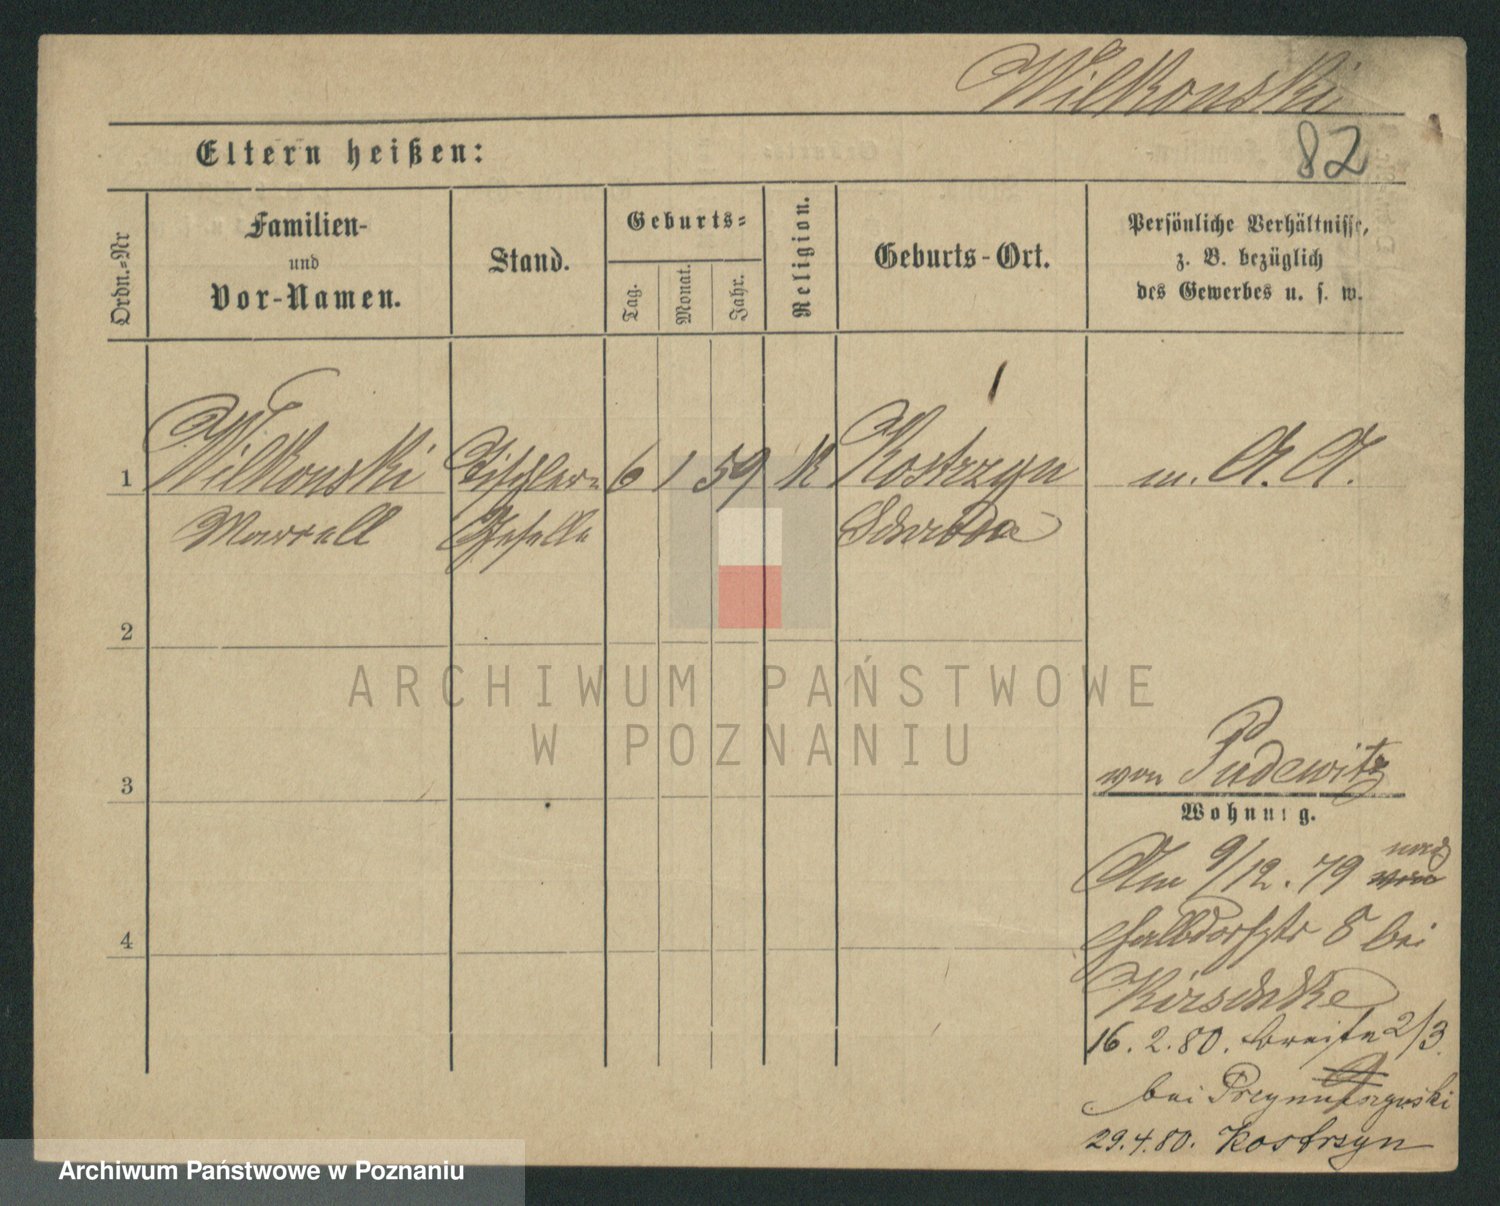 Wilkonski
82
Eltern heißen:
Ordn.-Nr
Familien-
und
Vor-Namen.
Stand.
Geburts-
Tag.
Monat.
Jahr.
Religion.
Geburts-Ort.
Persönliche Verhältnisse,
z. B. bezüglich
des Gewerbes u. s. w.
1 Wilkonski Tischler- 6 1 59 K Kostrzyn m. A. A.
Marcell Geselle Schroda
2
3
4
von Pudewitz
Wohnung.
Am 9/12. 79 nach
Halbdorfstr 8 bei
Kirschke
16. 2. 80. Breite 2/3.
bei
29.4.80. Kostrzyn
ARCHIWUM PAŃSTWOWE
W POZNANIU
Archiwum Państwowe w Poznaniu